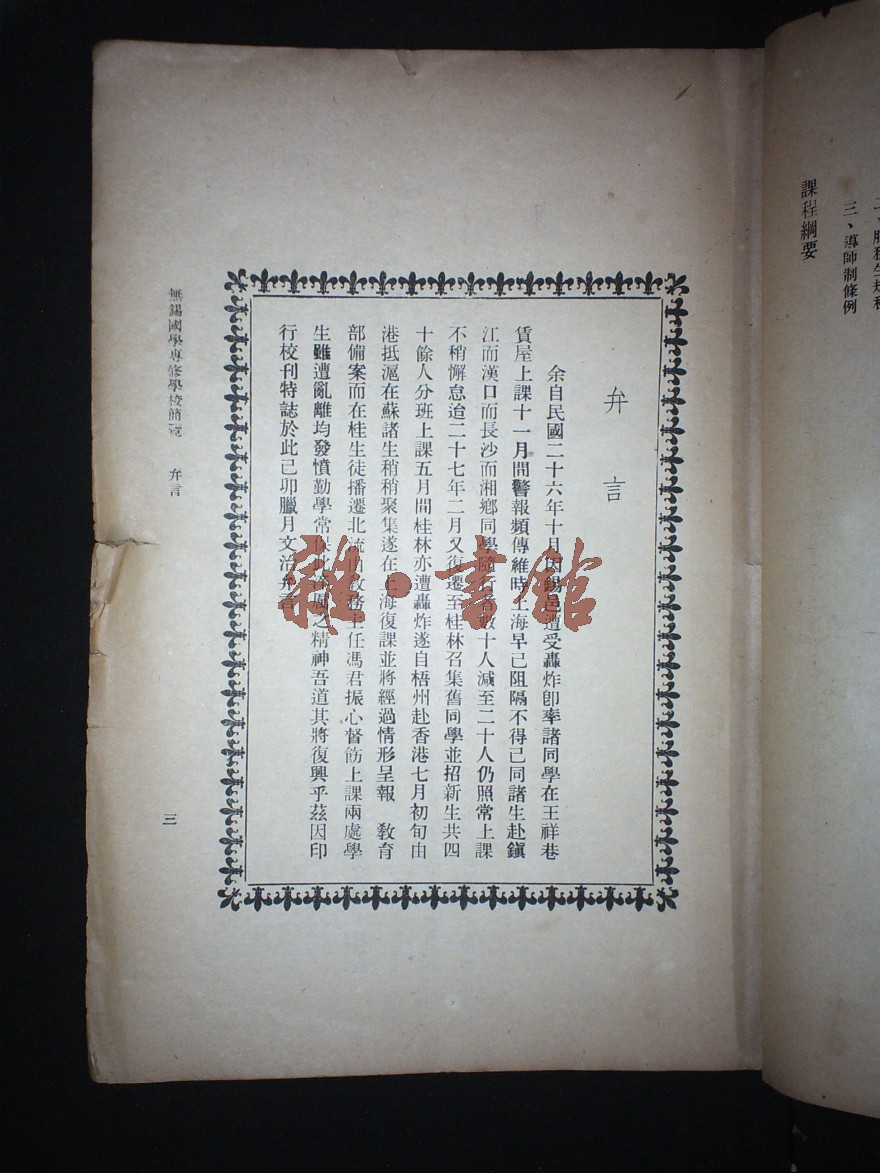 二、服務生規程
三、導師制條例
課程綱要
弁言
余自民國二十六年十月因錫邑遭受轟炸卽率諸同學在王祥巷
賃屋上課十一月間警報頻傳維時上海早已阻隔不得已同諸生赴鎭
江而漢口而長沙而湘鄕同學隨行者數十人減至二十人仍照常上課
不稍懈怠迨二十七年二月又復遷至桂林召集舊同學並招新生共四
十餘人分班上課五月間桂林亦遭轟炸遂自梧州赴香港七月初旬由
港抵滬在蘇諸生稍稍聚集遂在上海復課並將經過情形呈報 敎育
部備案而在桂生徒播遷北流由敎務主任馮君振心督飭上課兩處學
生雖遭亂離均發憤勤學常 此 之精神吾道其將復興乎茲因印
行校刊特誌於此己卯臘月文治弁言
無錫國學專修學校簡覽 弁言
三
雜·書館